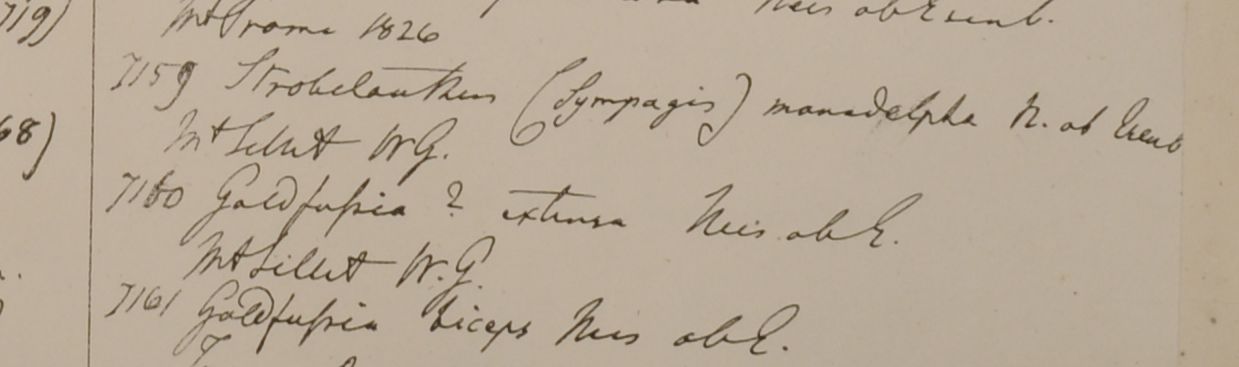 719) Nees ab Esenb.
Mt Prome 1826
7159 Strobilanthus (Sympagis) monadelpha N. ab Esenb
68) Mt Sillet W.G.
7160 Goldfussia ? extensa Nees ab E.
Mt Sillet W.G.
7161 Goldfussia biceps Nees ab E.